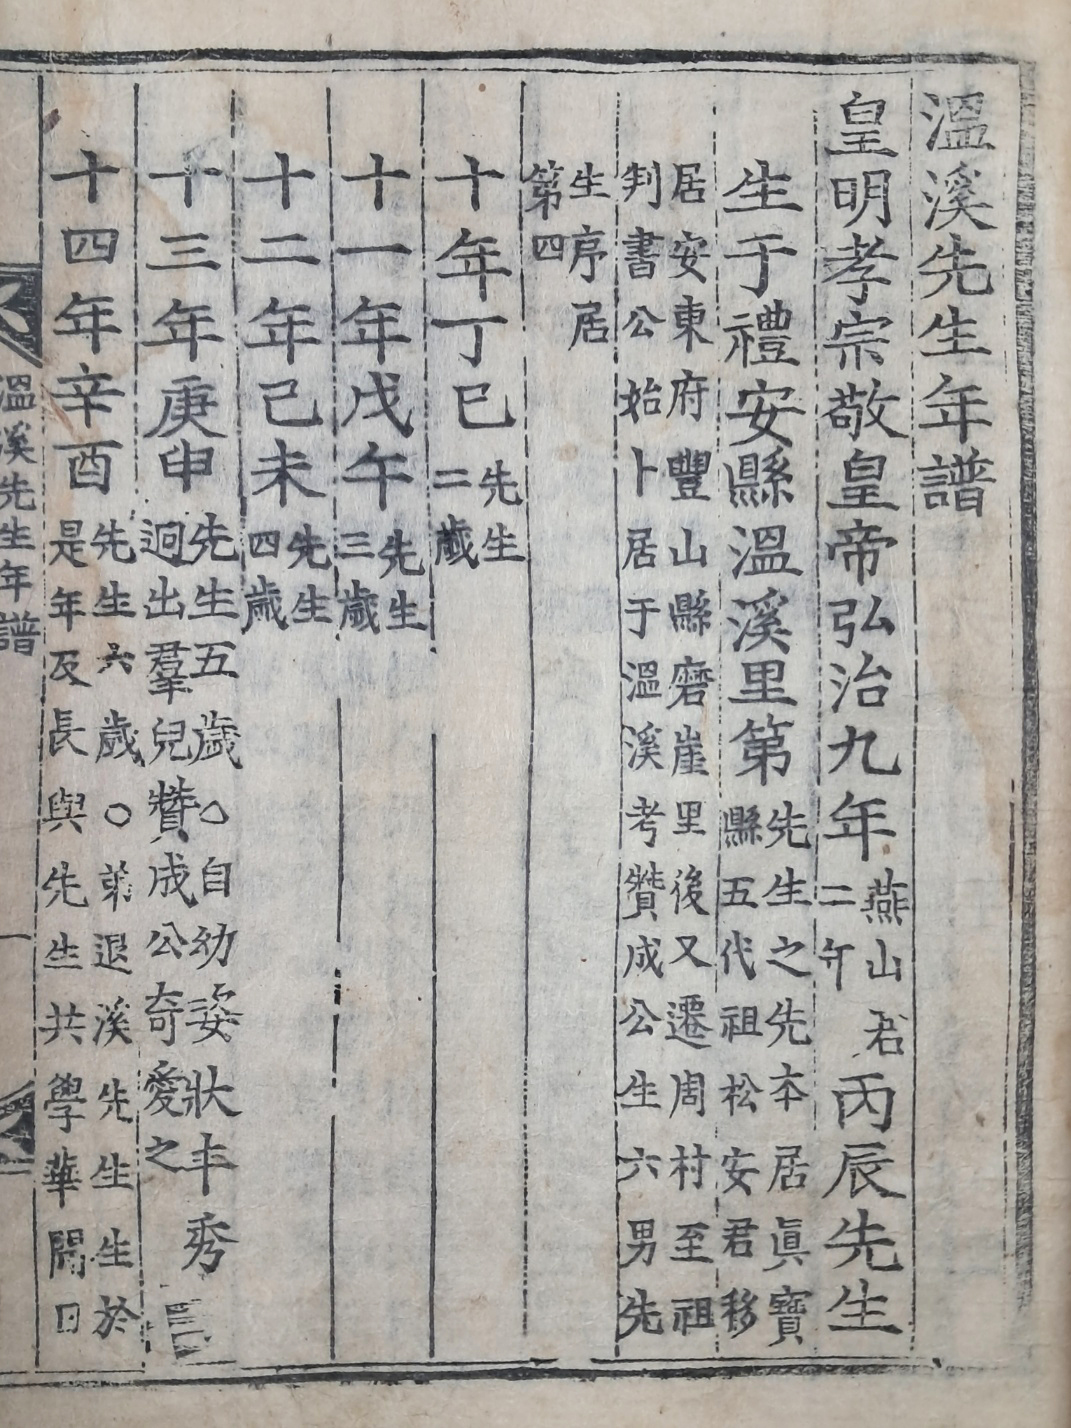 溫溪先生年譜
皇明孝宗敬皇帝弘治九年燕山君二年丙辰先生
生于禮安縣溫溪里第先生之先本居眞寶縣五代祖松安君移
居安東府豐山縣磨崖里後又遷周村至祖判書公始卜居于溫溪考贊成公生六男先
生序居第四
十年丁巳先生二歲
十一年戊午先生三歲
十二年己未先生四歲
十三年庚申先生五歲○自幼姿狀丰秀迥出羣兒贊成公奇愛之
十四年辛酉先生六歲○弟退溪先生生於是年及長與先生共學華聞日
溫溪先生年譜
一